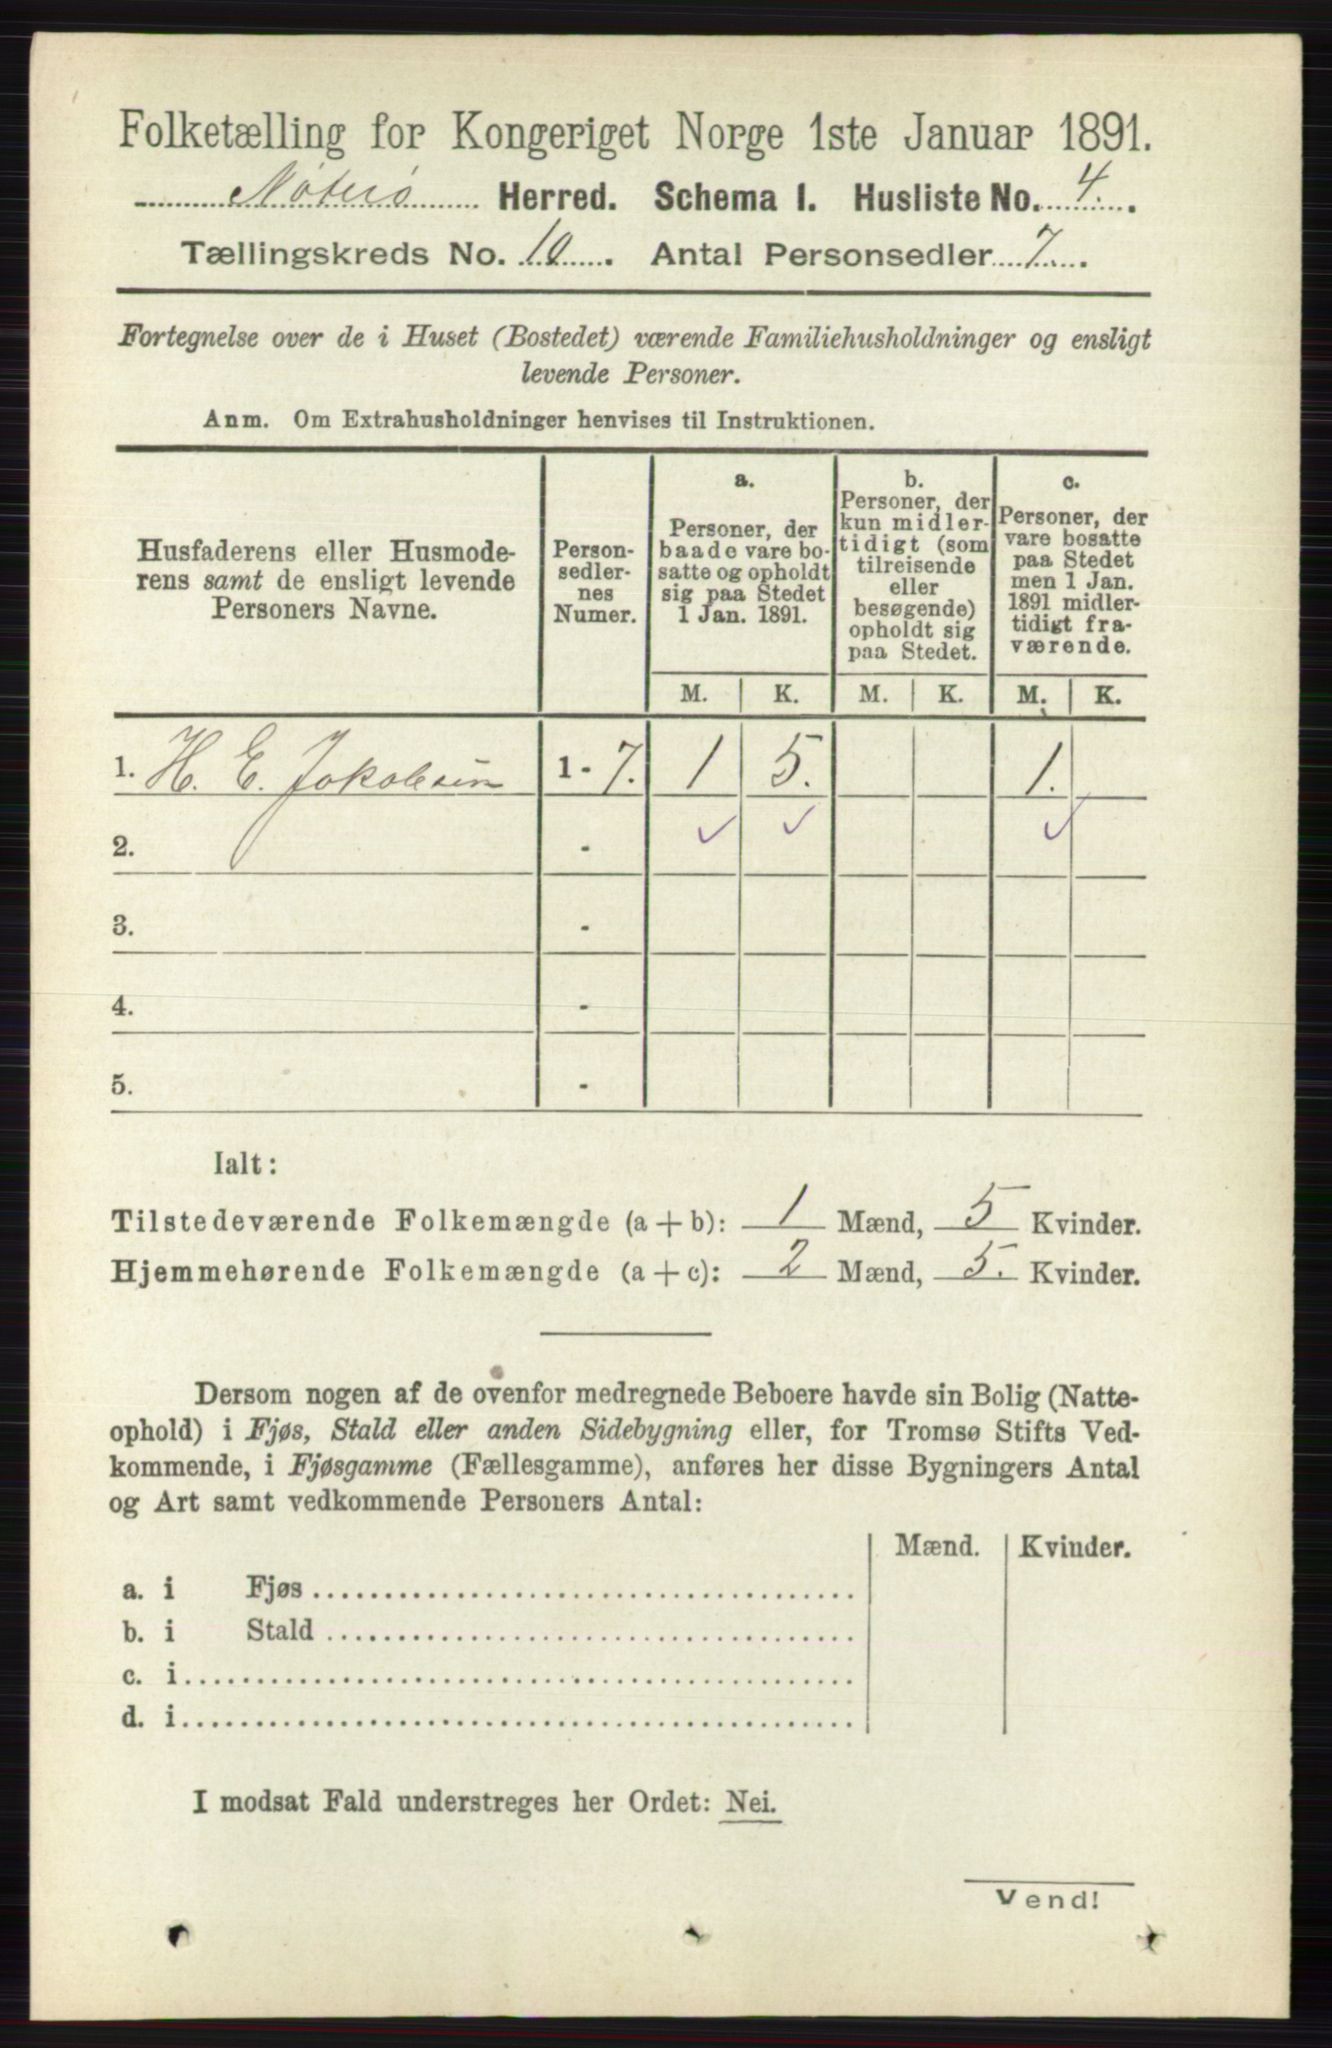 Folketælling for Kongeriget Norge 1ste Januar 1891.
Nøterø Herred. Schema I. Husliste No. 4.
Tællingskreds No. 10. Antal Personsedler 7.
Fortegnelse over de i Huset (Bostedet) værende Familiehusholdninger og ensligt
levende Personer.
Anm. Om Extrahusholdninger henvises til Instruktionen.
Husfaderens eller Husmode-
rens samt de ensligt levende
Personers Navne.
Person-
sedler-
nes
Numer.
a.
Personer, der
baade vare bo-
satte og opholdt
sig paa Stedet
1 Jan. 1891.
b.
Personer, der
kun midler-
tidigt (som
tilreisende
eller
besøgende)
opholdt sig
paa Stedet.
c.
Personer, der
vare bosatte
paa Stedet
men 1 Jan.
1891 midler-
tidigt fra-
værende.
M. K. M. K. M. K.
1. H. E. Jakobsen 1 - 7. 1 5. 1.
2. - ✓ ✓ ✓
3. -
4. -
5. -
Ialt:
Tilstedeværende Folkemængde (a + b): 1 Mænd, 5 Kvinder.
Hjemmehørende Folkemængde (a + c): 2 Mænd, 5. Kvinder.
Dersom nogen af de ovenfor medregnede Beboere havde sin Bolig (Natte-
ophold) i Fjøs, Stald eller anden Sidebygning eller, for Tromsø Stifts Ved-
kommende, i Fjøsgamme (Fællesgamme), anføres her disse Bygningers Antal
og Art samt vedkommende Personers Antal:
Mænd. Kvinder.
a. i Fjøs
b. i Stald
c. i
d. i
I modsat Fald understreges her Ordet: Nei.
Vend!